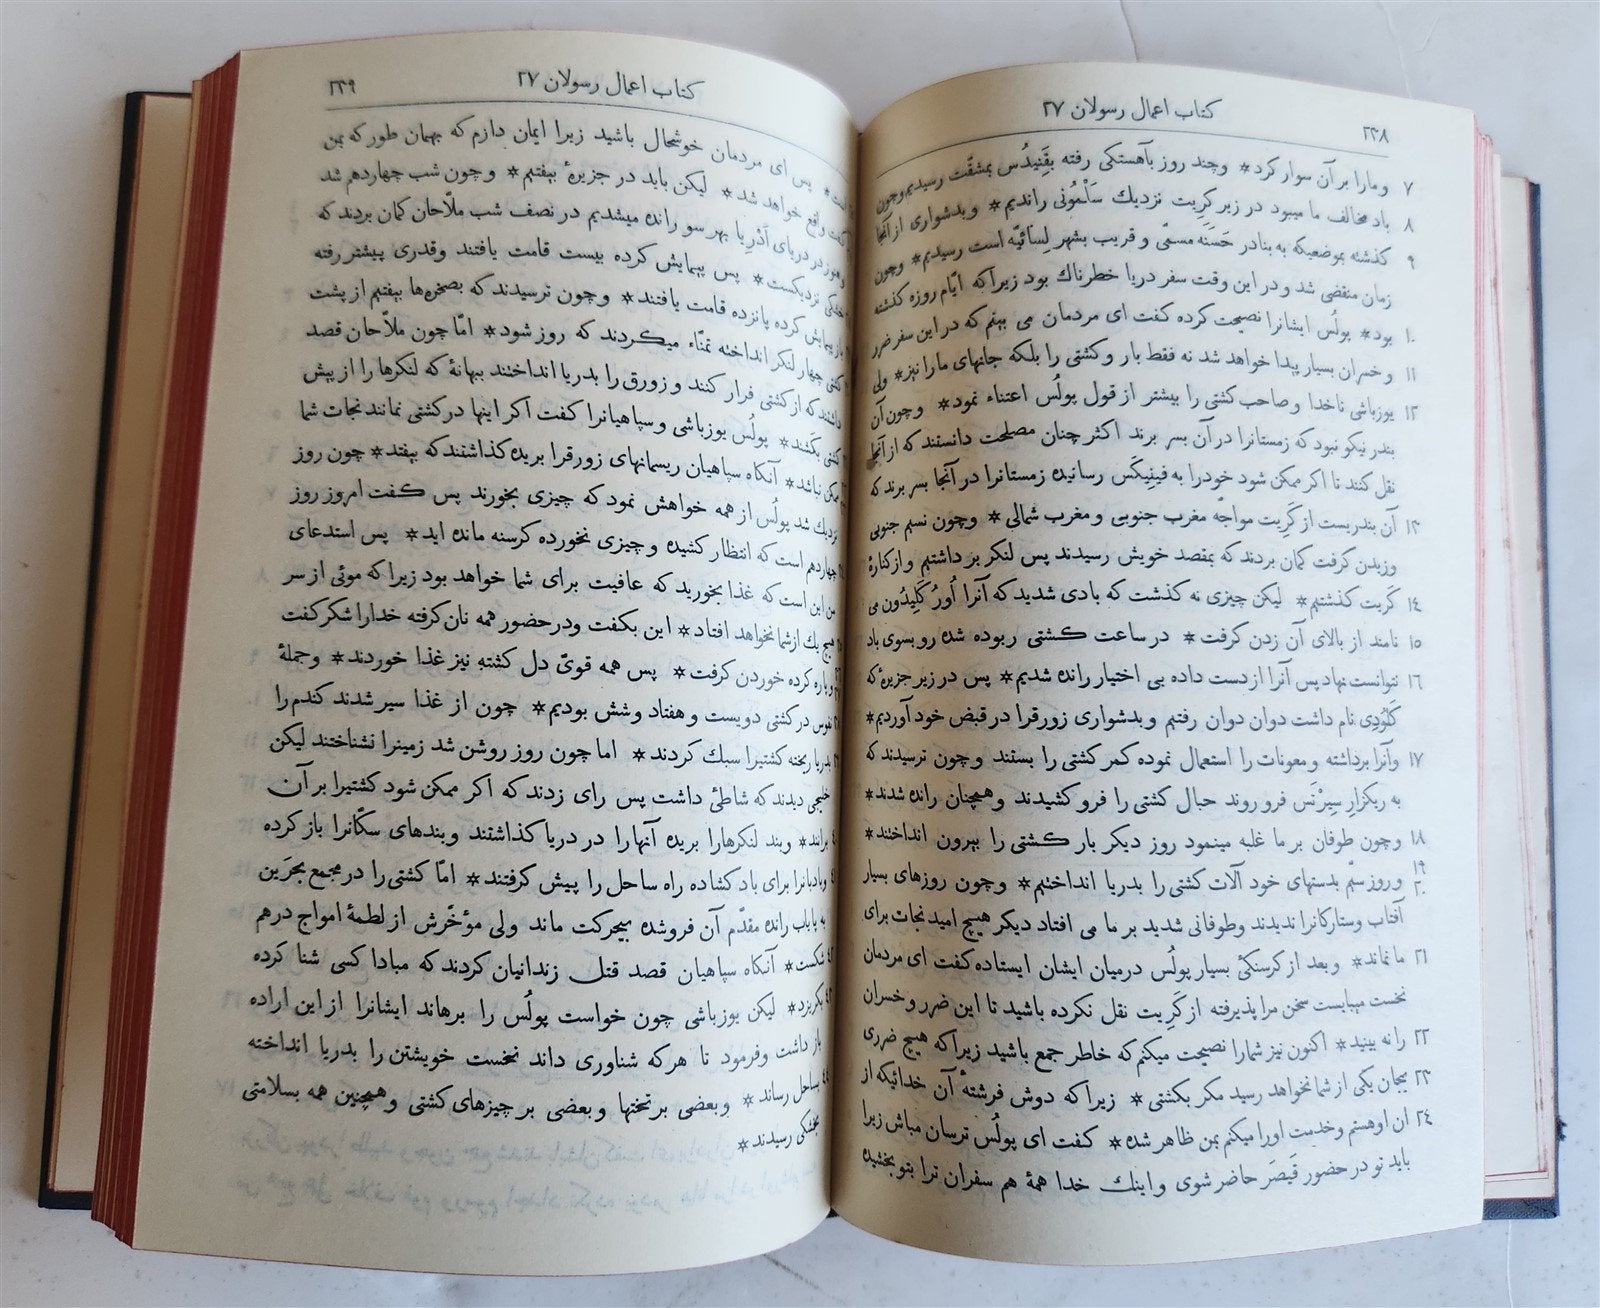 ٢٣٨
کتاب اعمال رسولان ٢٧
٧ ومارا بر آن سوار کرد * وچند روز بآهستکی رفته بقَنِیدُس بمشقّت رسیدیم وچون
٨ باد مخالف ما میبود در زیر کِرِیت نزدیك سَلْمُونی راندیم * وبدشواری از آنجا
٩ کذشته بموضعیکه به بنادر حَسَنَه مسمّی و قریب بشهر لِسائیّه است رسیدیم * وچون
زمان منقضی شد و در این وقت سفر دریا خطرناك بود زیراکه ایّام روزه کذشته
١٠ بود * پولُس ایشانرا نصیحت کرده کفت ای مردمان می بینم که در این سفر ضرر
١١ وخسران بسیار پیدا خواهد شد نه فقط بار وکشتی را بلکه جانهای مارا نیز * ولی
١٢ یوزباشی ناخدا وصاحب کشتی را بیشتر از قول پولُس اعتناء نمود * وچون آن
بندر نیکو نبود که زمستانرا در آن بسر برند اکثر چنان مصلحت دانستند که از آنجا
نقل کنند تا اکر ممکن شود خودرا به فِینِیکَس رسانیده زمستانرا در آنجا بسر برند که
١٣ آن بندریست از کَرِیت مواجّه مغرب جنوبی و مغرب شمالی * وچون نسیم جنوبی
وزیدن کرفت کمان بردند که بمقصد خویش رسیدند پس لنکر بر داشتیم و از کنارهٔ
١٤ کَرِیت کذشتیم * لیکن چیزی نه کذشت که بادی شدید که آنرا اُورُ کَلِیدُون می
١٥ نامند از بالای آن زدن کرفت * در ساعت کشتی ربوده شده رو بسوی باد
١٦ نتوانست نهاد پس آنرا از دست داده بی اختیار رانده شدیم * پس در زیر جزیرهٔ که
کَلَوْدِی نام داشت دوان دوان رفتیم وبدشواری زورقرا در قبض خود آوردیم *
١٧ وآنرا برداشته ومعونات را استعمال نموده کمر کشتی را بستند وچون ترسیدند که
به ریکزار سِیرْتَس فرو روند حبال کشتی را فرو کشیدند وهمچنان رانده شدند *
١٨ وچون طوفان بر ما غلبه مینمود روز دیکر بار کشتی را بیرون انداختند *
١٩ ٢٠ وروز سیّم بدستهای خود آلات کشتی را بدریا انداختیم * وچون روزهای بسیار
آفتاب وستارکانرا ندیدند وطوفانی شدید بر ما می افتاد دیکر هیچ امید نجات برای
٢١ ما نماند * وبعد از کرسنکیٔ بسیار پولُس درمیان ایشان ایستاده کفت ای مردمان
نخست میبایست سخن مرا پذیرفته از کَرِیت نقل نکرده باشید تا این ضرر وخسران
٢٢ را نه بینید * اکنون نیز شمارا نصیحت میکنم که خاطر جمع باشید زیراکه هیچ ضرری
٢٣ بجان یکی از شما نخواهد رسید مکر بکشتی * زیراکه دوش فرشتهٔ آن خدائیکه از
٢٤ ان اوهستم وخدمت اورا میکنم بمن ظاهر شده * کفت ای پولُس ترسان مباش زیرا
باید تو در حضور قَیصَر حاضر شوی واینك خدا همهٔ هم سفران ترا بتو بخشیده
کتاب اعمال رسولان ٢٧
٢٣٩
است * پس ای مردمان خوشحال باشید زیرا ایمان دارم که بهمان طور که بمن
کفت واقع خواهد شد * لیکن باید در جزیرهٔ بیفتیم * وچون شب چهاردهم شد
وهنوز در دریای اَدْرِیا بهر سو رانده میشدیم در نصف شب ملاّحان کمان بردند که
خشکی نزدیکست * پس پیمایش کرده بیست قامت یافتند وقدری پیشتر رفته
باز پیمایش کرده پانزده قامت یافتند * وچون ترسیدند که بصخره‌ها بیفتیم از پشت
کشتی چهار لنکر انداخته تمنّاء میکردند که روز شود * امّا چون ملاّحان قصد
داشتند که از کشتی فرار کنند وزورق را بدریا انداختند ببهانهٔ که لنکرها را از پیش
کشتی بکشند * پولُس یوزباشی وسپاهیانرا کفت اکر اینها در کشتی نمانند نجات شما
ممکن نباشد * آنکاه سپاهیان ریسمانهای زورقرا بریده کذاشتند که بیفتد * چون روز
نزدیك شد پولُس از همه خواهش نمود که چیزی بخورند پس کفت امروز روز
چهاردهم است که انتظار کشیده وچیزی نخورده کرسنه مانده اید * پس استدعای
من این است که غذا بخورید که عافیت برای شما خواهد بود زیرا که موئی از سر
هیچ یك از شما نخواهد افتاد * این بکفت ودر حضور همه نان کرفته خدارا شکر کفت
وپاره کرده خوردن کرفت * پس همه قوئّ دل کشته نیز غذا خوردند * وجملهٔ
نفوس در کشتی دویست وهفتاد وشش بودیم * چون از غذا سیر شدند کندم را
بدریا ریخته کشتیرا سبك کردند * اما چون روز روشن شد زمینرا نشناختند لیکن
خلیجی دیدند که شاطئ داشت پس رای زدند که اکر ممکن شود کشتیرا بر آن
برانند * وبند لنکرهارا بریده آنهارا در دریا کذاشتند وبندهای سکّانرا باز کرده
وبادبانرا برای باد کشاده راه ساحل را پیش کرفتند * امّا کشتی را در مجمع بحرَین
به پایاب رانده مقدّم آن فروشده بیحرکت ماند ولی مؤخّرش از لطمهٔ امواج درهم
شکست * آنکاه سپاهیان قصد قتل زندانیان کردند که مبادا کسی شنا کرده
بکریزد * لیکن یوزباشی چون خواست پولُس را برهاند ایشانرا از این اراده
باز داشت وفرمود تا هرکه شناوری داند نخست خویشتن را بدریا انداخته
بساحل رساند * وبعضی بر تختها وبعضی بر چیزهای کشتی وهمچنین همه بسلامتی
بخشکی رسیدند *